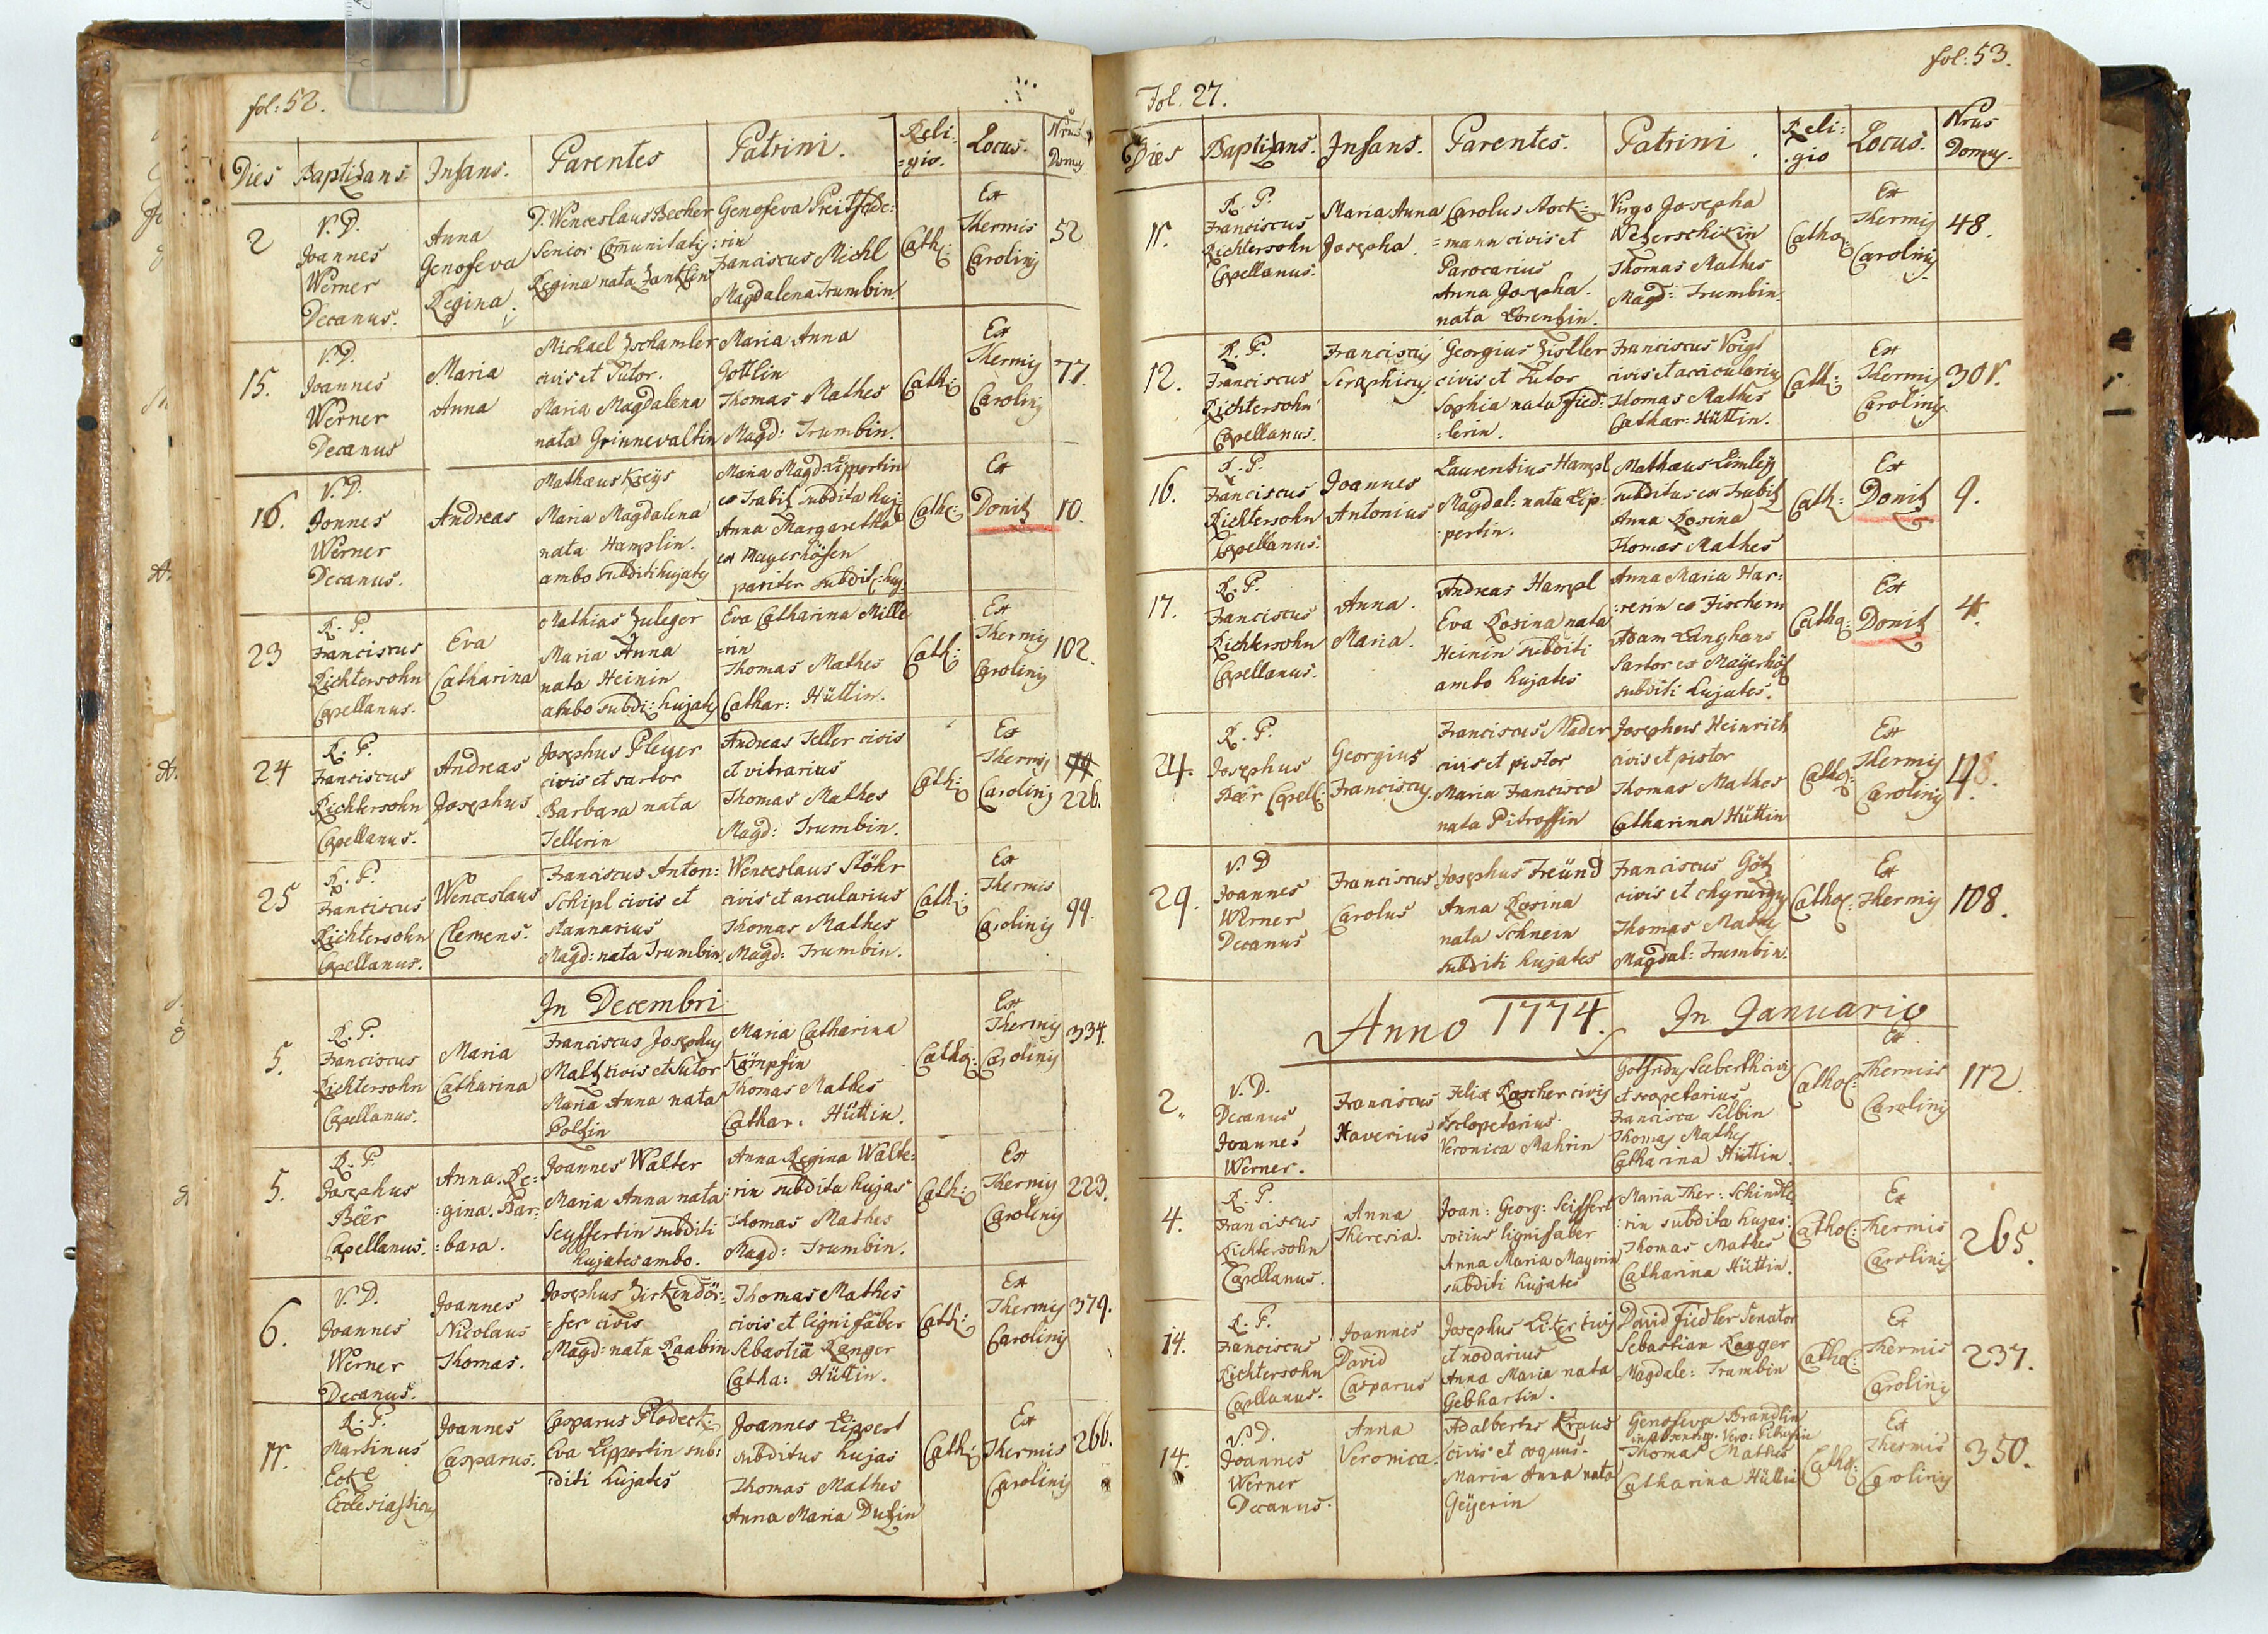 fol: 52.
Dies Baptizans. Infans. Parentes Patrini. Reli:=gio. Locus. Nrus Domus
2 V. D. Joannes Werner Decanus.
Anna Genofeva Regina.
D. Wenceslaus Becher
Senior Comunitatis
Regina nata Zanklin
Genofeva Preitfelde:
:rin
Franciscus Michl
Magdalena Trumbin.
Cath:
Ex Thermis Carolinis
52
15. V. D. Joannes Werner Decanus
Maria Anna
Michael Zschamler
civis et Sutor.
Maria Magdalena
nata Grinnevaltin
Maria Anna
Gottlin
Thomas Mathes
Magd: Trumbin.
Cath:
Ex Thermis Carolinis
77.
16. V. D. Jonnes Werner Decanus.
Andreas
Mathaus Kreys
Maria Magdalena
nata Hamplin.
ambo subditi hujatis
Maria Magd: Lippertin
ex Trabitz subdita huj:
Anna Margaretha
ex Mayerhöfen
pariter subdit: huj:
Cath:
Ex Donitz
10.
23 R. P. Franciscus Richtersohn Capellanus.
Eva Catharina
Mathias Zuleger
Maria Anna
nata Heinin
ambo subdi: hujatis
Eva Catharina Mille
=rin
Thomas Mathes
Cathar: Hüttin.
Cath:
Ex Thermis Carolinis
102.
24 R. P. Franciscus Richtersohn Capellanus.
Andreas Josephus
Josephus Pleyer
civis et sartor
Barbara nata
Tellerin
Andreas Teller civis
et vitrarius
Thomas Mathes
Magd: Trumbin.
Cath:
Ex Thermis Carolinis
226.
25 R. P. Franciscus Richtersohn Capellanus.
Wenceslaus Clemens.
Franciscus Anton:
Schipl civis et
stannarius
Magd: nata Trumbin.
Wenceslaus Stöhr
civis et arcularius
Thomas Mathes
Magd: Trumbin.
Cath:
Ex Thermis Carolinis
99.
In Decembri
5. R. P. Franciscus Richtersohn Capellanus.
Maria Catharina
Franciscus Josephus
Maltz civis et Sutor
Maria Anna nata
Poltzin
Maria Catharina
Kömpfin
Thomas Mathes
Cathar. Hüttin.
Catho:
Ex Thermis Carolinis
334.
5. R. P. Josephus Bëer Capellanus.
Anna. Re:
:gina. Bar:
=bara.
Joannes Walter
Maria Anna nata
Seyffertin subditi
hujates ambo.
Anna Regina Walte:
:rin subdita hujas
Thomas Mathes
Magd: Trumbin.
Cath:
Ex Thermis Carolinis
223.
6. V. D. Joannes Werner Decanus.
Joannes Nicolaus Thomas.
Josephus Zirkendör:
=fer civis
Magd: nata Raabin
Thomas Mathes
civis et lignifaber
Sebastiā Ranger
Catha: Hüttin.
Cath:
Ex Thermis Carolinis
379.
11. R. P. Martinus Ecke Ecclesiasticus
Joannes Casparus.
Casparus Plodeck:
Eva Lippertin sub:
:diti hujates
Joannes Lippert
subditus hujas
Thomas Mathes
Anna Maria Dutzin
Cath:
Ex Thermis Carolinis
266.
Fol. 27.
fol: 53.
Dies Baptizans. Infans. Parentes. Patrini. Reli:.gio Locus. Nrus Domus.
11. R. P. Franciscus Richtersohn Capellanus.
Maria Anna Josepha.
Carolus Stock:
=mann civis et
Parocarius
Anna Josepha.
nata Lorentzin.
Virgo Josepha
Wezerschikin
Thomas Mathes
Magd: Trumbin.
Catho:
Ex Thermis Carolinis
48.
12. R. P. Franciscus Richtersohn Capellanus.
Franciscus Seraphicus.
Georgius Zistler
civis et Sutor
Sophia nata Fied:
=lerin.
Franciscus Voigt
civis et acicularius
Thomas Mathes
Cathar: Hüttin.
Cath:
Ex Thermis Carolinis
301.
16. R. P. Franciscus Richtersohn Capellanus.
Joannes Antonius
Laurentius Hampl
Magdal: nata Lip:
:pertin.
Mathaus Limley
subditus ex Trabitz
Anna Rosina
Thomas Mathes
Cath:
Ex Donitz
9.
17. R. P. Franciscus Richtersohn Capellanus.
Anna. Maria.
Andreas Hampl
Eva Rosina nata
Heinin subditi
ambo hujates
Anna Maria Har:
:rerin ex Fischern
Adam Langhans
Sartor ex Mayerhöf
subditi hujates.
Catho:
Ex Donitz
4.
24. R. P. Josephus Bëer Capell:
Georgius Franciscus.
Franciscus Mader
civis et pistor
Maria Francisca
nata Pitroffin
Josephus Heinrich
civis et pistor
Thomas Mathes
Catharina Hüttin
Catho:
Ex Thermis Carolinis
29. V. D Joannes Werner Decanus
Franciscus Carolus
Josephus Freünd
Anna Rosina
nata Schnein
subditi hujates
Franciscus Götz
civis et chyrurgus
Thomas Mathes
Magdal: Trumbin.
Cathol:
Ex Thermis
108.
Anno 1774. In Januario
2. V. D. Decanus Joannes Werner.
Franciscus Xaverius
Felix Roscher civis
Sclopetarius.
Veronica Mahrin
Gotfridus Seiberth civis
et scopetarius
Francisca Selbin
Thomas Mathes
Catharina Hüttin.
Cathol:
Ex Thermis Carolinis
112.
4. R. P. Franciscus Richtersohn Capellanus.
Anna Theresia.
Joan: Georg: Seiffert
socius lignifaber
Anna Maria Mayerin
subditi hujates
Maria Ther: Schindle
:rin subdita hujas.
Thomas Mathes
Catharina Hüttin.
Cathol:
Ex Thermis Carolinis
265.
14. R. P. Franciscus Richtersohn Capellanus.
Joannes David Casparus
Josephus Liter civis
et nodarius
Anna Maria nata
Gebhartin.
David Fiedler Senator
Sebastian Ranger
Magdale: Trumbin
Cathol:
Ex Thermis Carolinis
237.
14. V. D. Joannes Werner Decanus.
Anna Veronica.
Adalbertus Kraus
civis et coquus.
Maria Anna nata
Geÿerin
Genofeva Brandlin
Thomas Mathes
Catharina Hüttin
Catho:
Ex Thermis Carolinis
350.